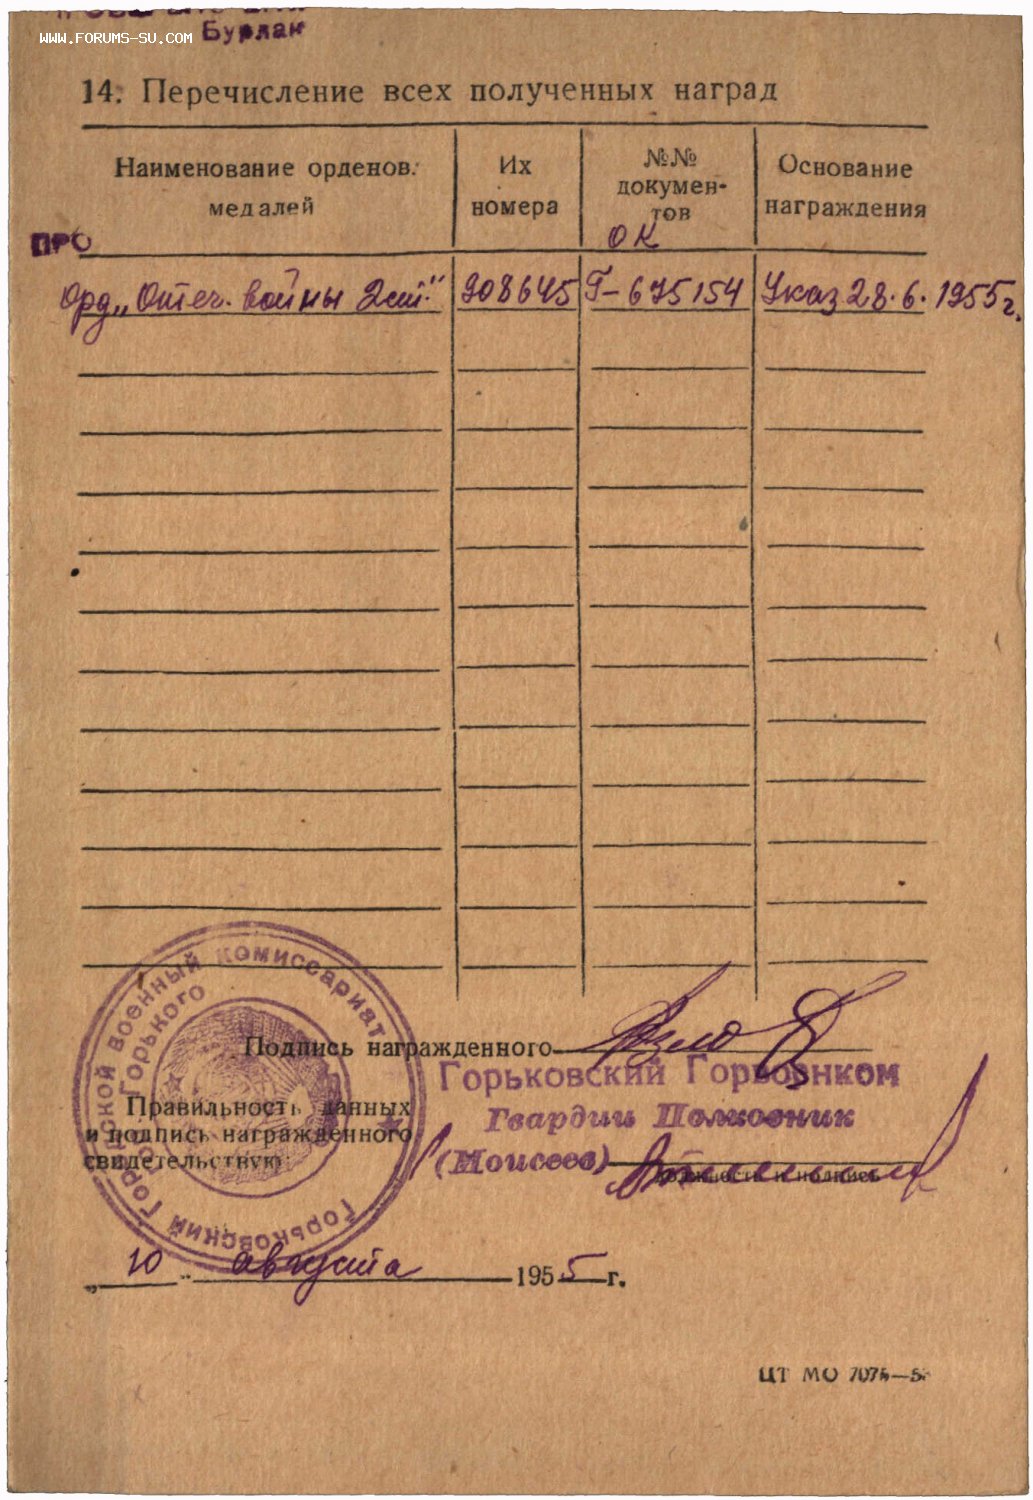 WWW.FORUMS-SU.COM
Бурлак
14. Перечисление всех полученных наград
Наименование орденов. медалей
Их номера
№№ докумен-тов
Основание награждения
ПРО
ОК
Орд. „Отеч. войны 2 ст."
908645
Г-675154
Указ 28.6.1955 г.
Подпись награжденного
Горьковский Горвоенком
Гвардии Полковник
(Моисеев)
должность и подпись
Правильность данных
и подпись награжденного
свидетельствую:
Горьковский Городской военный комиссариат
Горького
„10" августа 1955 г.
ЦТ МО